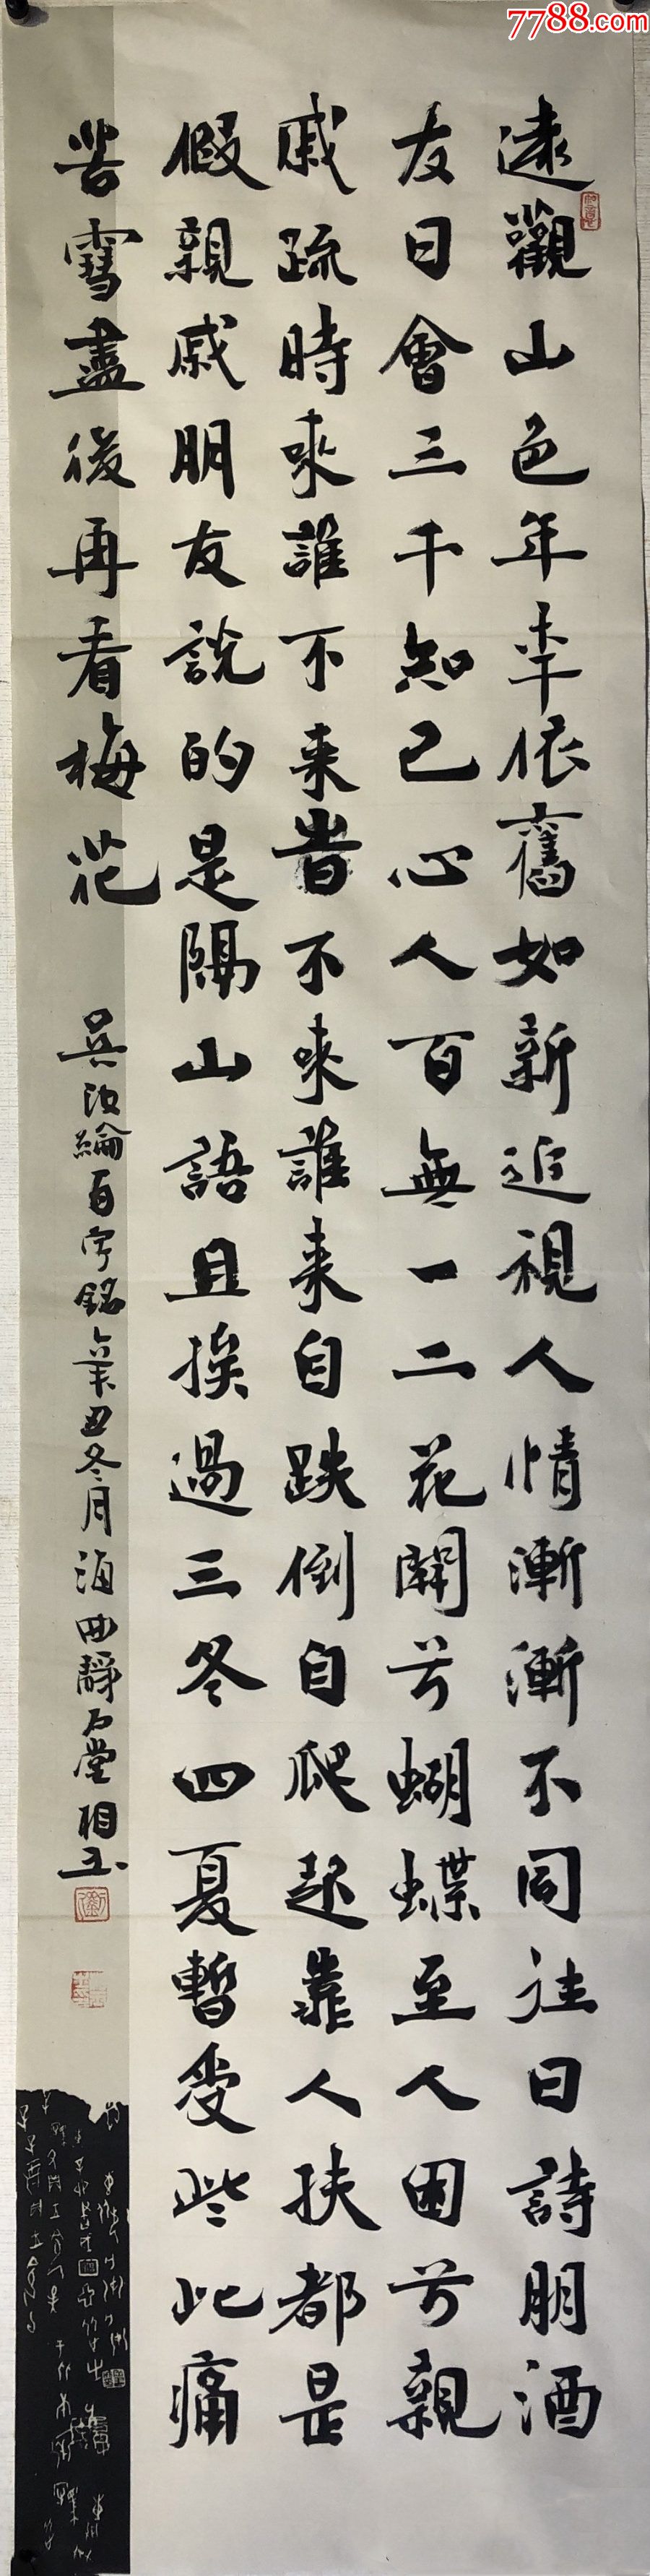 7788.com
遠觀山色年年依舊如新近視人情漸漸不同往日詩朋酒
友日會三千知己心人百無一二花開兮蝴蝶至人困兮親
戚疏時來誰不來昔不來誰来自跌倒自爬起靠人扶都是
假親戚朋友說的是隔山語且挨過三冬四夏暫受些此痛
苦雪盡後再看梅花
吳汝綸百字銘辛丑冬月海曲靜石堂相玉